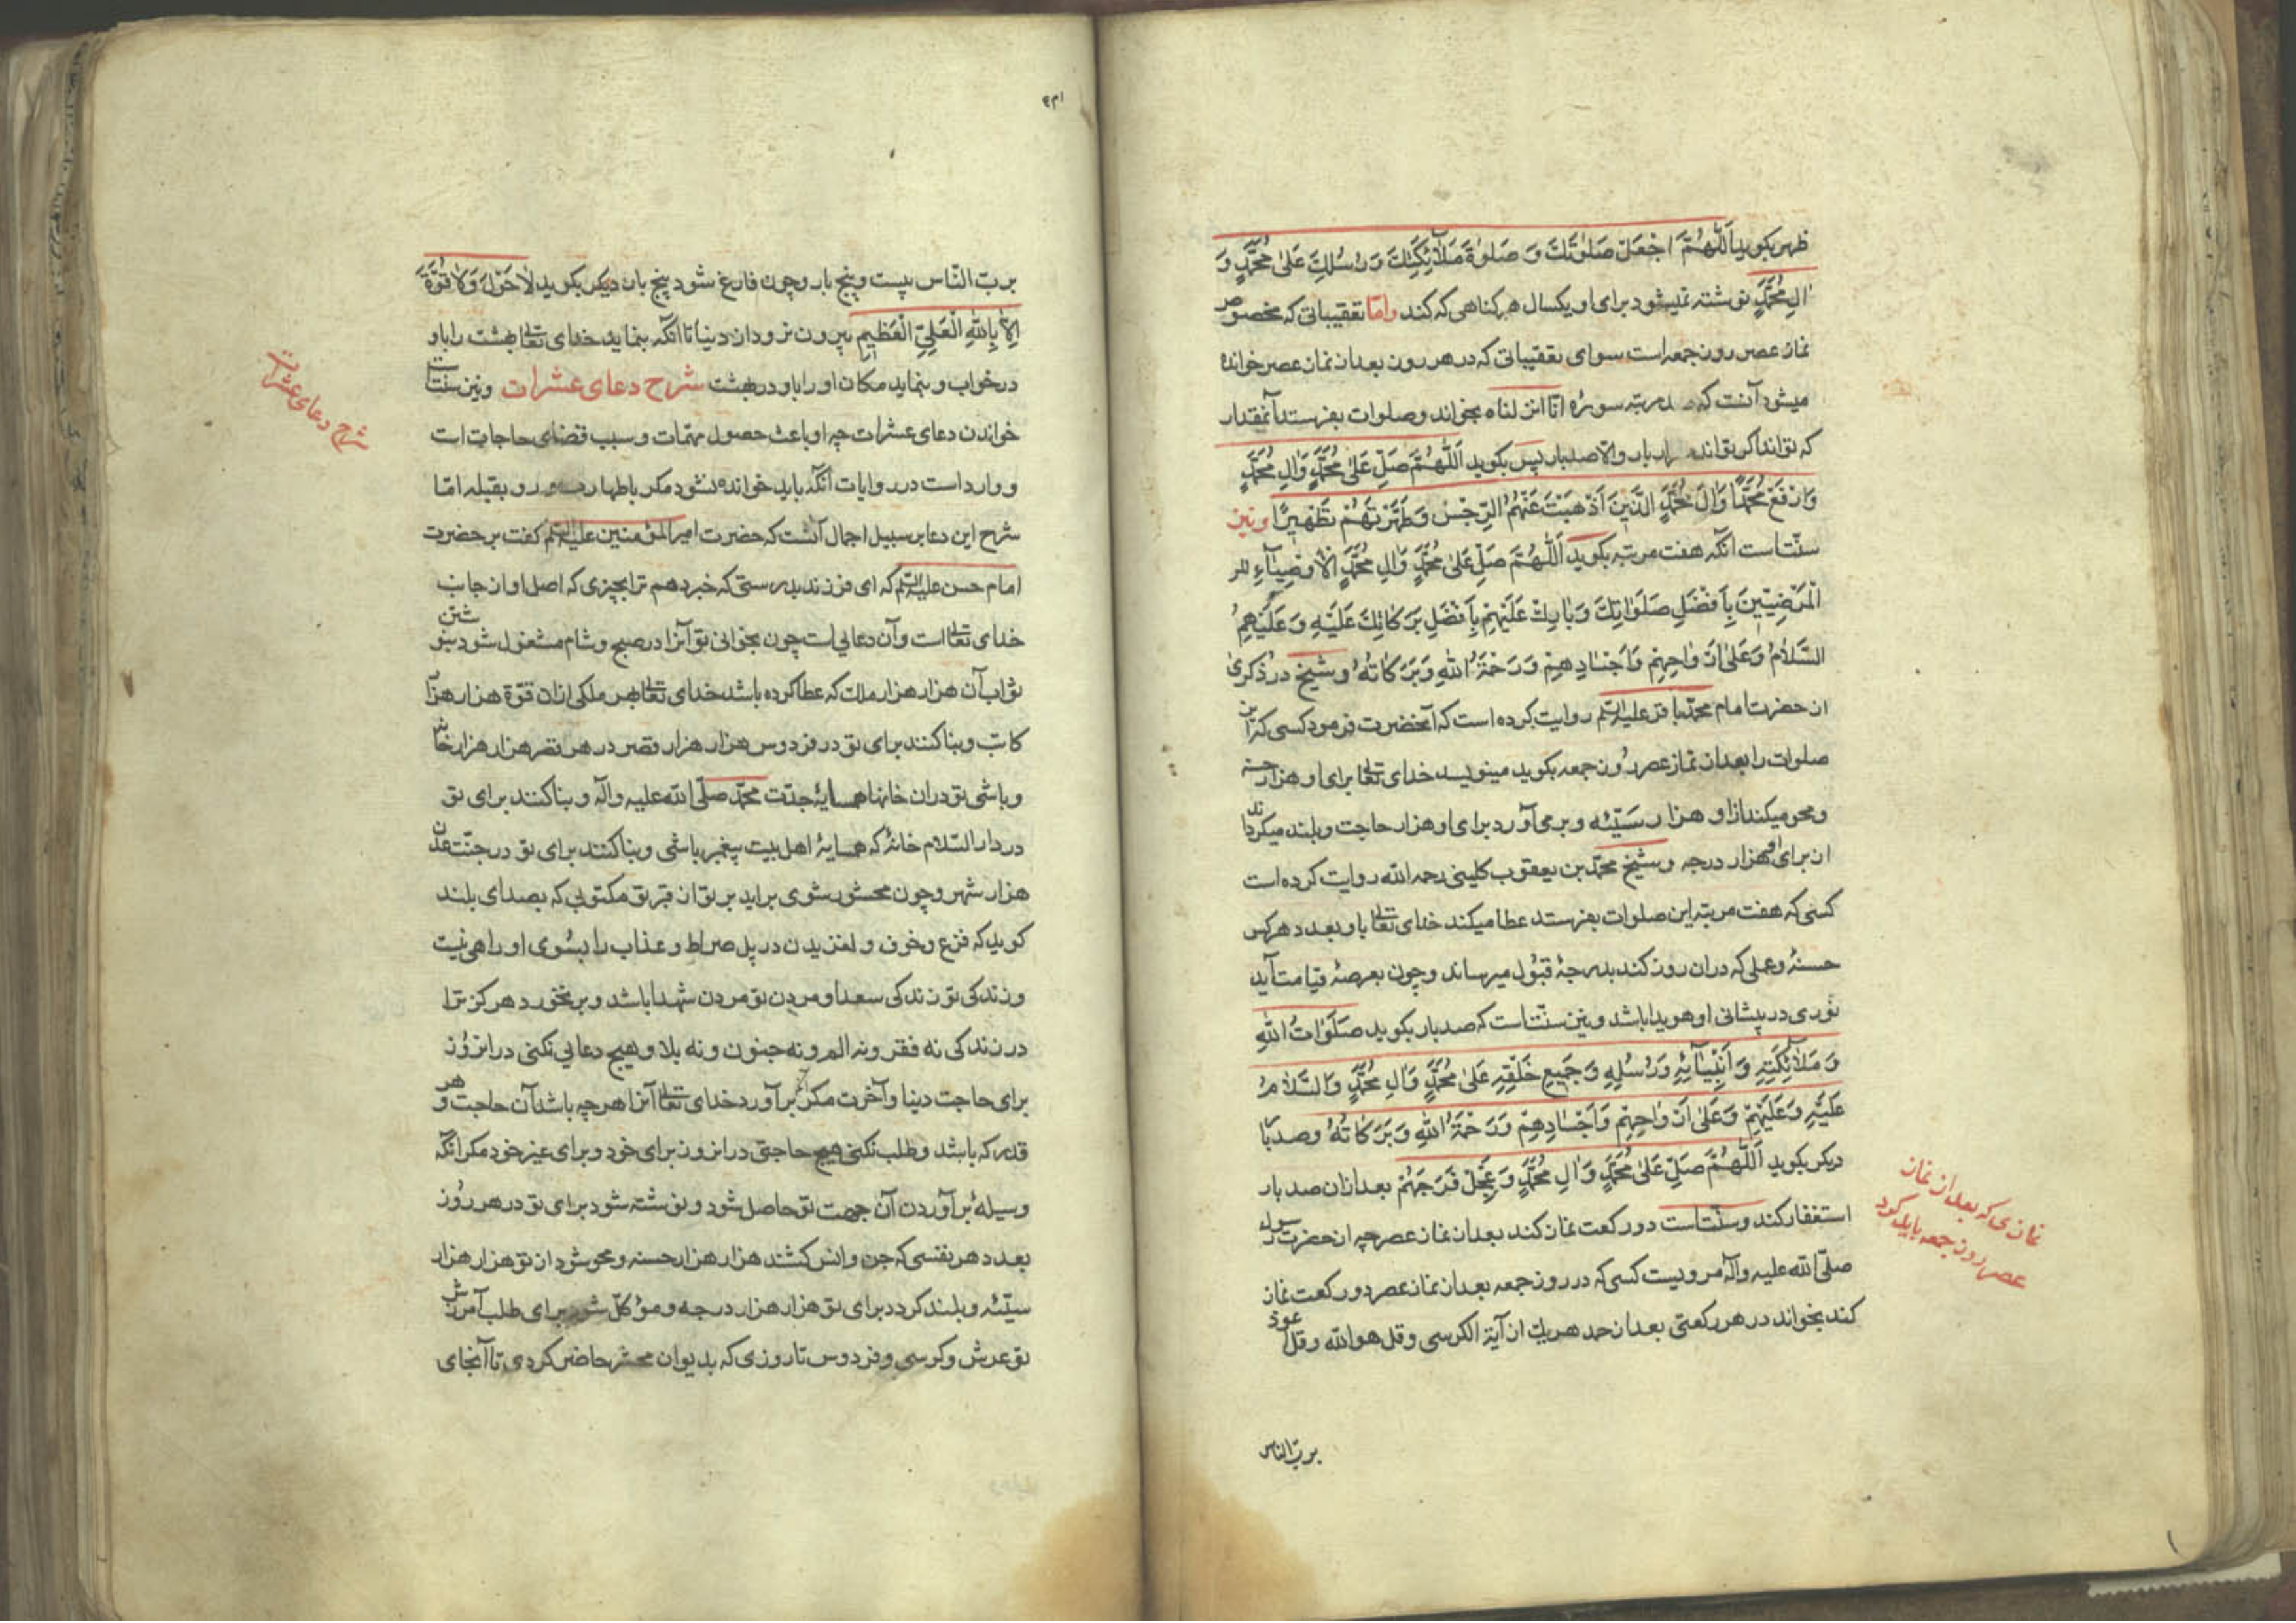 ظهر بکوید اَللّٰهُمَّ اجْعَلْ صَلوٰتَكَ وَ صَلوٰةَ مَلٰٓائِكَتِكَ وَ رُسُلِكَ عَلیٰ مُحَمَّدٍ وَ
اٰلِ مُحَمَّدٍ نوشته نمیشود برای او یکسال هر کناهی که کند وامّا تعقیباتی که مخصوص
نماز عصر روز جمعه است سوای تعقیباتی که در هر روز بعد از نماز عصر خوانده
میشود آنست که مرتبه سورۀ انّا انزلناه بخواند وصلوات بفرستد آنمقدار
که تواند اکر تواند هزار بار والّا صد بار پس بکوید اَللّٰهُمَّ صَلِّ عَلیٰ مُحَمَّدٍ وَاٰلِ مُحَمَّدٍ
وَارْفَعْ مُحَمَّدًا وَاٰلَ مُحَمَّدٍ الَّذِینَ اَذْهَبْتَ عَنْهُمُ الرِّجْسَ وَطَهَّرْتَهُمْ تَطْهِیرًا ونیز
سنّتاست انکه هفت مرتبه بکوید اَللّٰهُمَّ صَلِّ عَلیٰ مُحَمَّدٍ وَاٰلِ مُحَمَّدٍ الْاَوْصِیٰٓاءِ
الْمَرْضِیّینَ بِاَفْضَلِ صَلَوٰاتِكَ وَبٰارِكْ عَلَیْهِمْ بِاَفْضَلِ بَرَكٰاتِكَ عَلَیْهِ وَعَلَیْهِمُ
السَّلٰامُ وَعَلیٰ اَرْوٰاحِهِمْ وَاَجْسٰادِهِمْ وَرَحْمَةُ اللهِ وَبَرَكٰاتُهُ وشیخ در ذکری
از حضرت امام محمّد باقر علیه السّلم روایت کرده است که آنحضرت فرمود کسی که این
صلوات را بعد از نماز عصر روز جمعه بکوید مینویسد خدای تعالی برای او هزار حسنه
ومحو میکند از او هزار سَیّئه و برمی آورد برای او هزار حاجت وبلند میکرداند
از برای او هزار درجه وشیخ محمّد بن یعقوب کلینی رحمه الله روایت کرده است
کسی که هفت مرتبه این صلوات بفرستد عطا میکند خدای تعالی باو بعدد هرکس
حسنۀ وعملی که دران روز کند بدرجۀ قبول میرساند وچون بعرصۀ قیامت آید
نوری در پیشانی او هویدا باشد ونیز سنّتاست که صد بار بکوید صَلَوٰاتُ اللهِ
وَ مَلٰٓائِكَتِهِ وَ اَنْبِیٰٓائِهِ وَرُسُلِهِ وَ جَمِیعِ خَلْقِهِ عَلیٰ مُحَمَّدٍ وَاٰلِ مُحَمَّدٍ وَالسَّلٰامُ
عَلَیْهِ وَعَلَیْهِمْ وَعَلیٰ اَرْوٰاحِهِمْ وَاَجْسٰادِهِمْ وَرَحْمَةُ اللهِ وَبَرَكٰاتُهُ وصد بار
دیکر بکوید اَللّٰهُمَّ صَلِّ عَلیٰ مُحَمَّدٍ وَاٰلِ مُحَمَّدٍ وَعَجِّلْ فَرَجَهُمْ بعد ازان صد بار
استغفار کند وسنّتاست دو رکعت نماز کند بعد از نماز عصر چه از حضرت رسول
صلّی الله علیه وآله مرویست کسی که در روز جمعه بعد از نماز عصر دو رکعت نماز
کند بخواند در هر رکعتی بعد از حمد هریك از آیة الکرسی وقل هو الله وقل اعوذ
نمازی که بعد از نماز
عصر روز جمعه باید کرد
بربّ الناس
بربّ النّاس بیست وپنج بار وچون فارغ شود پنج بار دیکر بکوید لٰا حَوْلَ وَلٰا قُوَّةَ
اِلّٰا بِاللهِ الْعَلِیِّ الْعَظِیمِ بیرون نرود از دنیا تا انکه بنماید خدای تعالی بهشت را باو
درخواب وبنماید مکان او را باو در بهشت شرح دعای عشرات ونیز سنّتاست
خواندن دعای عشرات چه او باعث حصول مهمّات وسبب قضای حاجات است
ووارد است در روایات انکه باید خوانده نشود مکر باطهارت رو بقبله امّا
شرح این دعا بر سبیل اجمال آنست که حضرت امیر المؤمنین علیه السّلم کفت بر حضرت
امام حسن علیه السّلم که ای فرزند بدرستی که خبر دهم ترا بچیزی که اصل او از جانب
خدای تعالی است وآن دعایی است چون بخوانی تو آنرا در صبح وشام مشغول شود بنوشتن
ثواب آن هزار هزار ملك که عطا کرده باشد خدای تعالی بهر ملکی ازان قوّة هزار هزار
کاتب وبنا کنند برای تو در فردوس هزار هزار قصر در هر قصر هزار هزار خانه
وباشی تو دران خانها همسایۀ جدّت محمّد صلّی الله علیه وآله وبنا کنند برای تو
در دار السّلام خانۀ که همسایۀ اهل بیت پیغمبر باشی وبنا کنند برای تو در جنّت عدن
هزار شهر وچون محشور شوی براید بر تو از قبر تو مکتوبی که بصدای بلند
کوید که فزع وخوف و لغزیدن در پل صراط وعذاب را بسوی او راهی نیست
وزندکی تو زندکی سعدا ومردن تو مردن شهدا باشد وبر نخورد هرکز ترا
در زندکی نه فقر ونه الم ونه جنون ونه بلا وهیچ دعایی نکنی در انروز
برای حاجت دنیا وآخرت مکر برآورد خدای تعالی آنرا هرچه باشد آن حاجت وهر
قدر که باشد وطلب نکنی هیچ حاجتی در انروز برای خود وبرای غیر خود مکر انکه
وسیلۀ برآوردن آن جهت تو حاصل شود ونوشته شود برای تو در هر روز
بعدد هر نفسی که جن وانس کشند هزار هزار حسنه ومحو شود از تو هزار هزار
سیّئه وبلند کردد برای تو هزار هزار درجه وموکّل شود برای طلب آمرزش
تو عرش وکرسی وفردوس تا روزی که بدیوان محشر حاضر کردی تا آنجای
شرح دعای عشرات